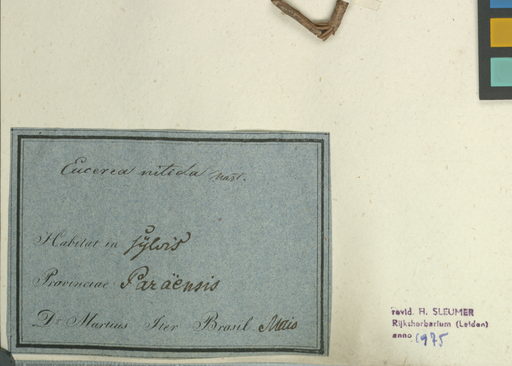 Eucerea nitida Mart.
Habitat in sÿlvis
Provinciae Paraënsis
Dr. Martius Iter Brasil. Maio
revid. H. SLEUMER
Rijksherbarium (Leiden)
anno 1975